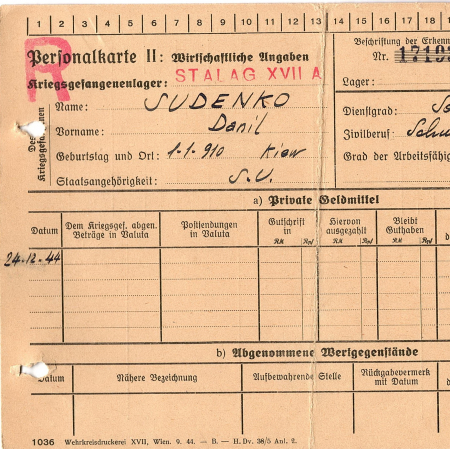 1 2 3 4 5 6 7 8 9 10 11 12 13 14 15 16 17 18
R
Personalkarte II: Wirtschaftliche Angaben
Beschriftung der Erkenn
Nr. 17193
Kriegsgefangenenlager: STALAG XVII A
Lager:
Des Kriegsgefangenen
Name: SUDENKO
Vorname: Danil
Geburtstag und Ort: 1.1.910 Kiew
Staatsangehörigkeit: S.U.
Dienstgrad:
Zivilberuf
Grad der Arbeitsfähig
a) Private Geldmittel
Datum
Dem Kriegsgef. abgen. Beträge in Valuta
Postsendungen in Valuta
Gutschrift in
RM Rpf
Hiervon ausgezahlt
RM Rpf
Bleibt Guthaben
RM Rpf
d
24.12.44
b) Abgenommene Wertgegenstände
Datum
Nähere Bezeichnung
Aufbewahrende Stelle
Rückgabevermerk mit Datum
d
1036 Wehrkreisdruckerei XVII, Wien. 9. 44. — B. — H. Dv. 38/5 Anl. 2.